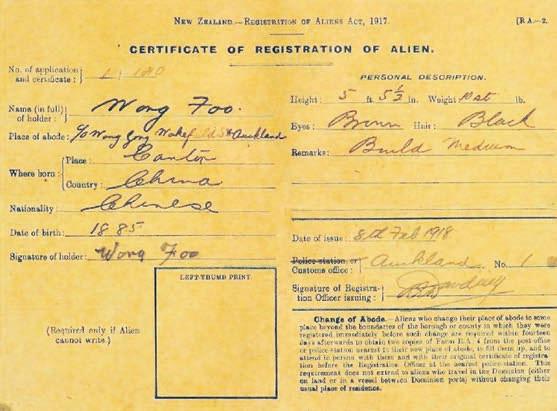 NEW ZEALAND.—REGISTRATION OF ALIENS ACT, 1917.
[R.A.—2.
CERTIFICATE OF REGISTRATION OF ALIEN.
No. of application and certificate:
Name (in full) of holder: Wong Foo.
Place of abode: c/o Wong Gong Wakefield St Auckland
Where born: Place: Canton
Country: China
Nationality: Chinese
Date of birth: 1885
Signature of holder: Wong Foo
(Required only if Alien
cannot write.)
LEFT-THUMB PRINT.
PERSONAL DESCRIPTION.
Height: 5 ft. 5½ in. Weight: st. lb.
Eyes: Brown Hair: Black
Remarks: Build Medium
Date of issue: 8th Feb 1918
Police-station or
Customs office: Auckland No. 1
Signature of Registra-
tion Officer issuing:
Change of Abode.—Aliens who change their place of abode to some
place beyond the boundaries of the borough or county in which they were
registered immediately before such change are required within fourteen
days afterwards to obtain two copies of Form R.A. 4 from the post-office
or police-station nearest to their new place of abode, to fill them up, and to
attend in person with them and with their original certificate of registra-
tion before the Registration Officer at the nearest police-station. This
requirement does not extend to aliens who travel in the Dominion (either
on land or in a vessel between Dominion ports) without changing their
usual place of residence.